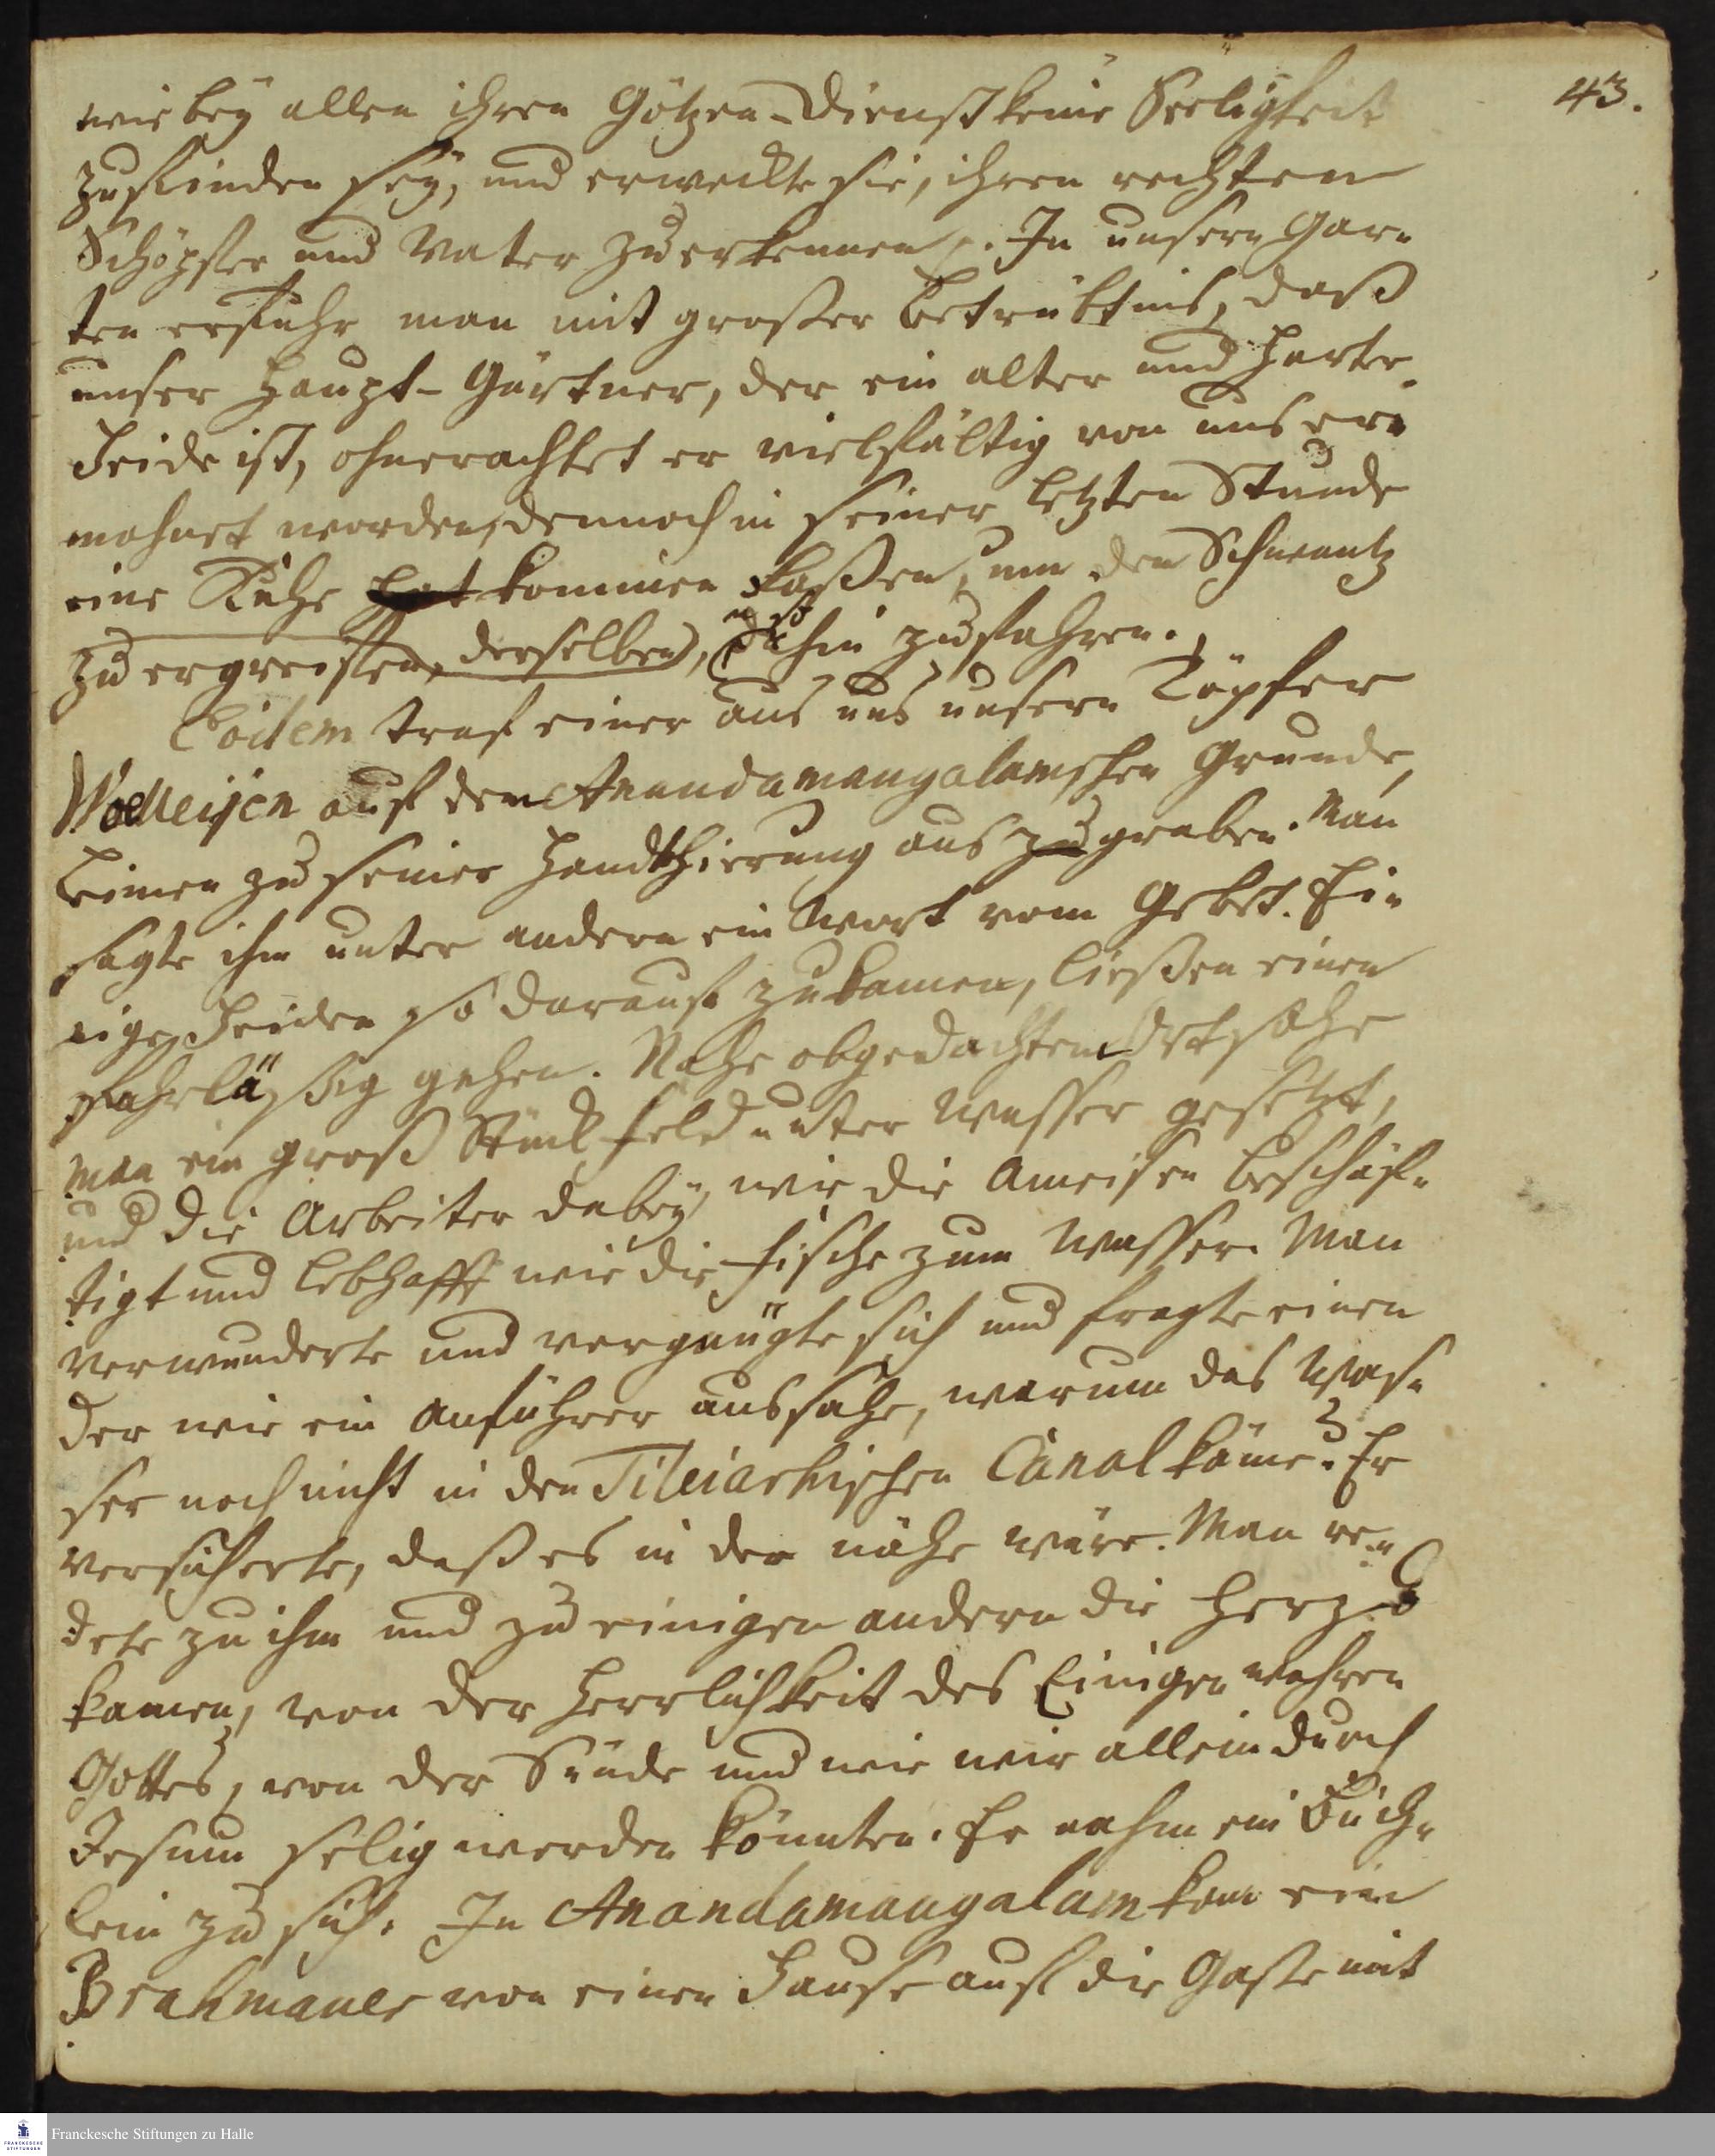 43.
wie bey allen ihren Götzen-Dienst keine Seeligkeit
zu finden sey, und erweckte sie, ihren rechten
Schöpfer und Vater zu erkennen. In unsern Gar-
ten erfuhr man mit großer Betrübtnis, daß
unser Haupt-Gärtner, der ein alter und harter
Heide ist, ohnerachtet er vielfältig von uns er-
mahnet worden, dennoch in seiner letzten Stunde
eine Kuhe hat kommen laßen, um den Schwantz
zu ergreiffen, derselben, u so dahin zu fahren.
Eodem traf einer aus uns unsern Töpfer
auf dem Anandamangalamschen Grunde,
Leimen zu seiner Handthierung aus zu graben. Man
sagte ihm unter andern ein Wort vom Gebet. Ei-
nige Heiden so darauf zu kamen, ließen einen
fahrläßig gehen. Nahe obgedachtem Ort sahe
man ein groß Stück Feld unter Wasser gesetzt,
und die Arbeiter dabey, wie die Ameisen beschäf-
tigt und lebhafft wie die Fische zum Wasser. Man
verwunderte und vergnügte sich und fragte einen
der wie ein Anführer aussahe, warum das Was-
ser noch nicht in den Tileiarhischen Canal käme? Er
versicherte, daß es in der nähe wäre. Man re-
dete zu ihm und zu einigen andern die herzu
kamen, von der Herrlichkeit des Einigen wahren
Gottes, von der Sünde und wie wir allein durch
Jesum selig werden könnten. Er nahm ein Büch-
lein zu sich. In Anandamangalam kam ein
Brahmaner von einem Hause auf die Gaße mit
Franckesche Stiftungen zu Halle